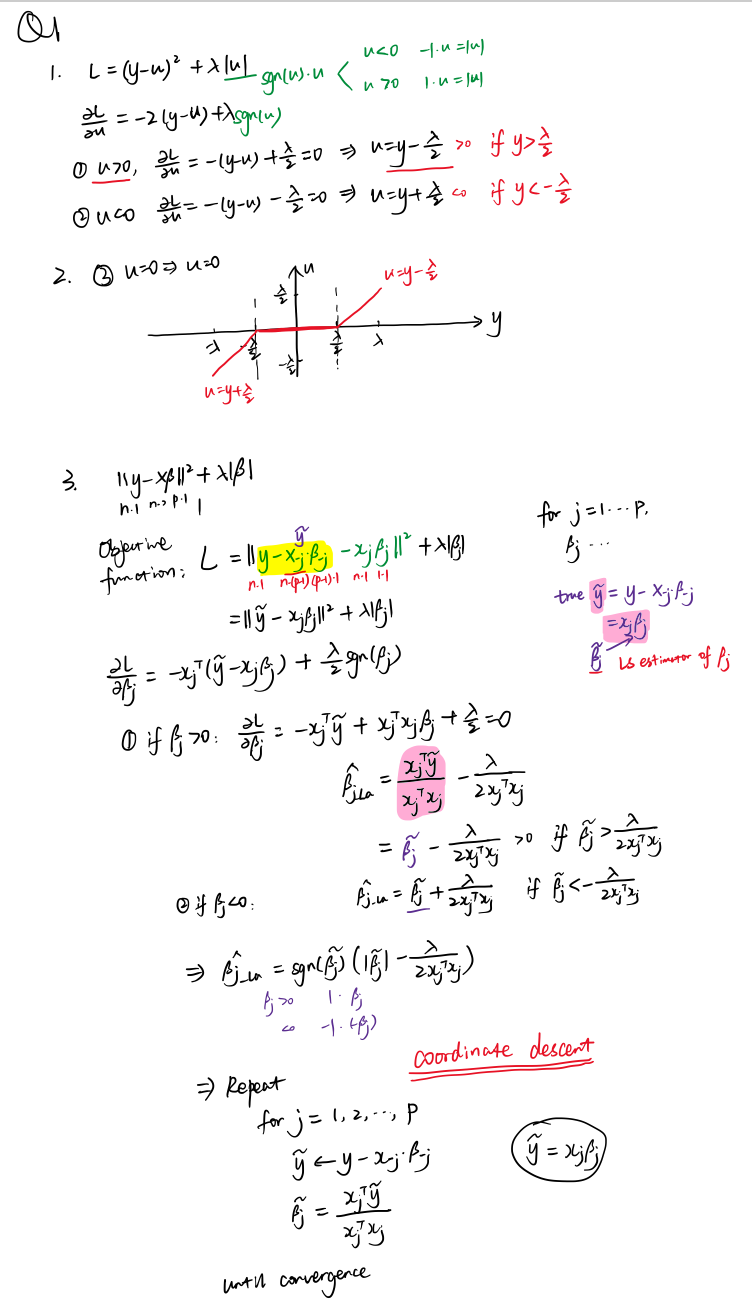 Q1
1. L = (y-u)² + λ|u| sgn(u)·u < u<0 -1·u = |u|
u>0 1·u = |u|
∂L/∂u = -2(y-u) + λsgn(u)
① u>0, ∂L/∂u = -(y-u) + λ/2 = 0 ⇒ u = y - λ/2 >0 if y > λ/2
② u<0 ∂L/∂u = -(y-u) - λ/2 = 0 ⇒ u = y + λ/2 <0 if y < -λ/2
2. ③ u=0 ⇒ u=0
u
λ/2
u = y - λ/2
y
-λ -λ/2 λ/2 λ
-λ/2
u = y + λ/2
3. ||y - xβ||² + λ|β|
n·1 n·p p·1 1
for j = 1 ... p,
βj ...
Objective function:
ỹ
L = ||y - x-j·β-j - xjβj||² + λ|βj|
n·1 n·(p-1) (p-1)·1 n·1 1·1
true ỹ = y - x-j·β-j
= xjβj
= ||ỹ - xjβj||² + λ|βj|
β̃j LS estimator of βj
∂L/∂βj = -xjᵀ(ỹ - xjβj) + λ/2 sgn(βj)
① if βj >0: ∂L/∂βj = -xjᵀỹ + xjᵀxjβj + λ/2 = 0
β̂j_la = xjᵀỹ/xjᵀxj - λ/2xjᵀxj
= β̃j - λ/2xjᵀxj >0 if β̃j > λ/2xjᵀxj
② if βj <0: β̂j_la = β̃j + λ/2xjᵀxj if β̃j < -λ/2xjᵀxj
⇒ β̂j_la = sgn(β̃j) (|β̃j| - λ/2xjᵀxj)
βj >0 1·βj
<0 -1·(-βj)
coordinate descent
⇒ Repeat
for j = 1, 2, ..., P
ỹ ← y - x-j·β-j
ỹ = xjβj
β̃j = xjᵀỹ/xjᵀxj
until convergence